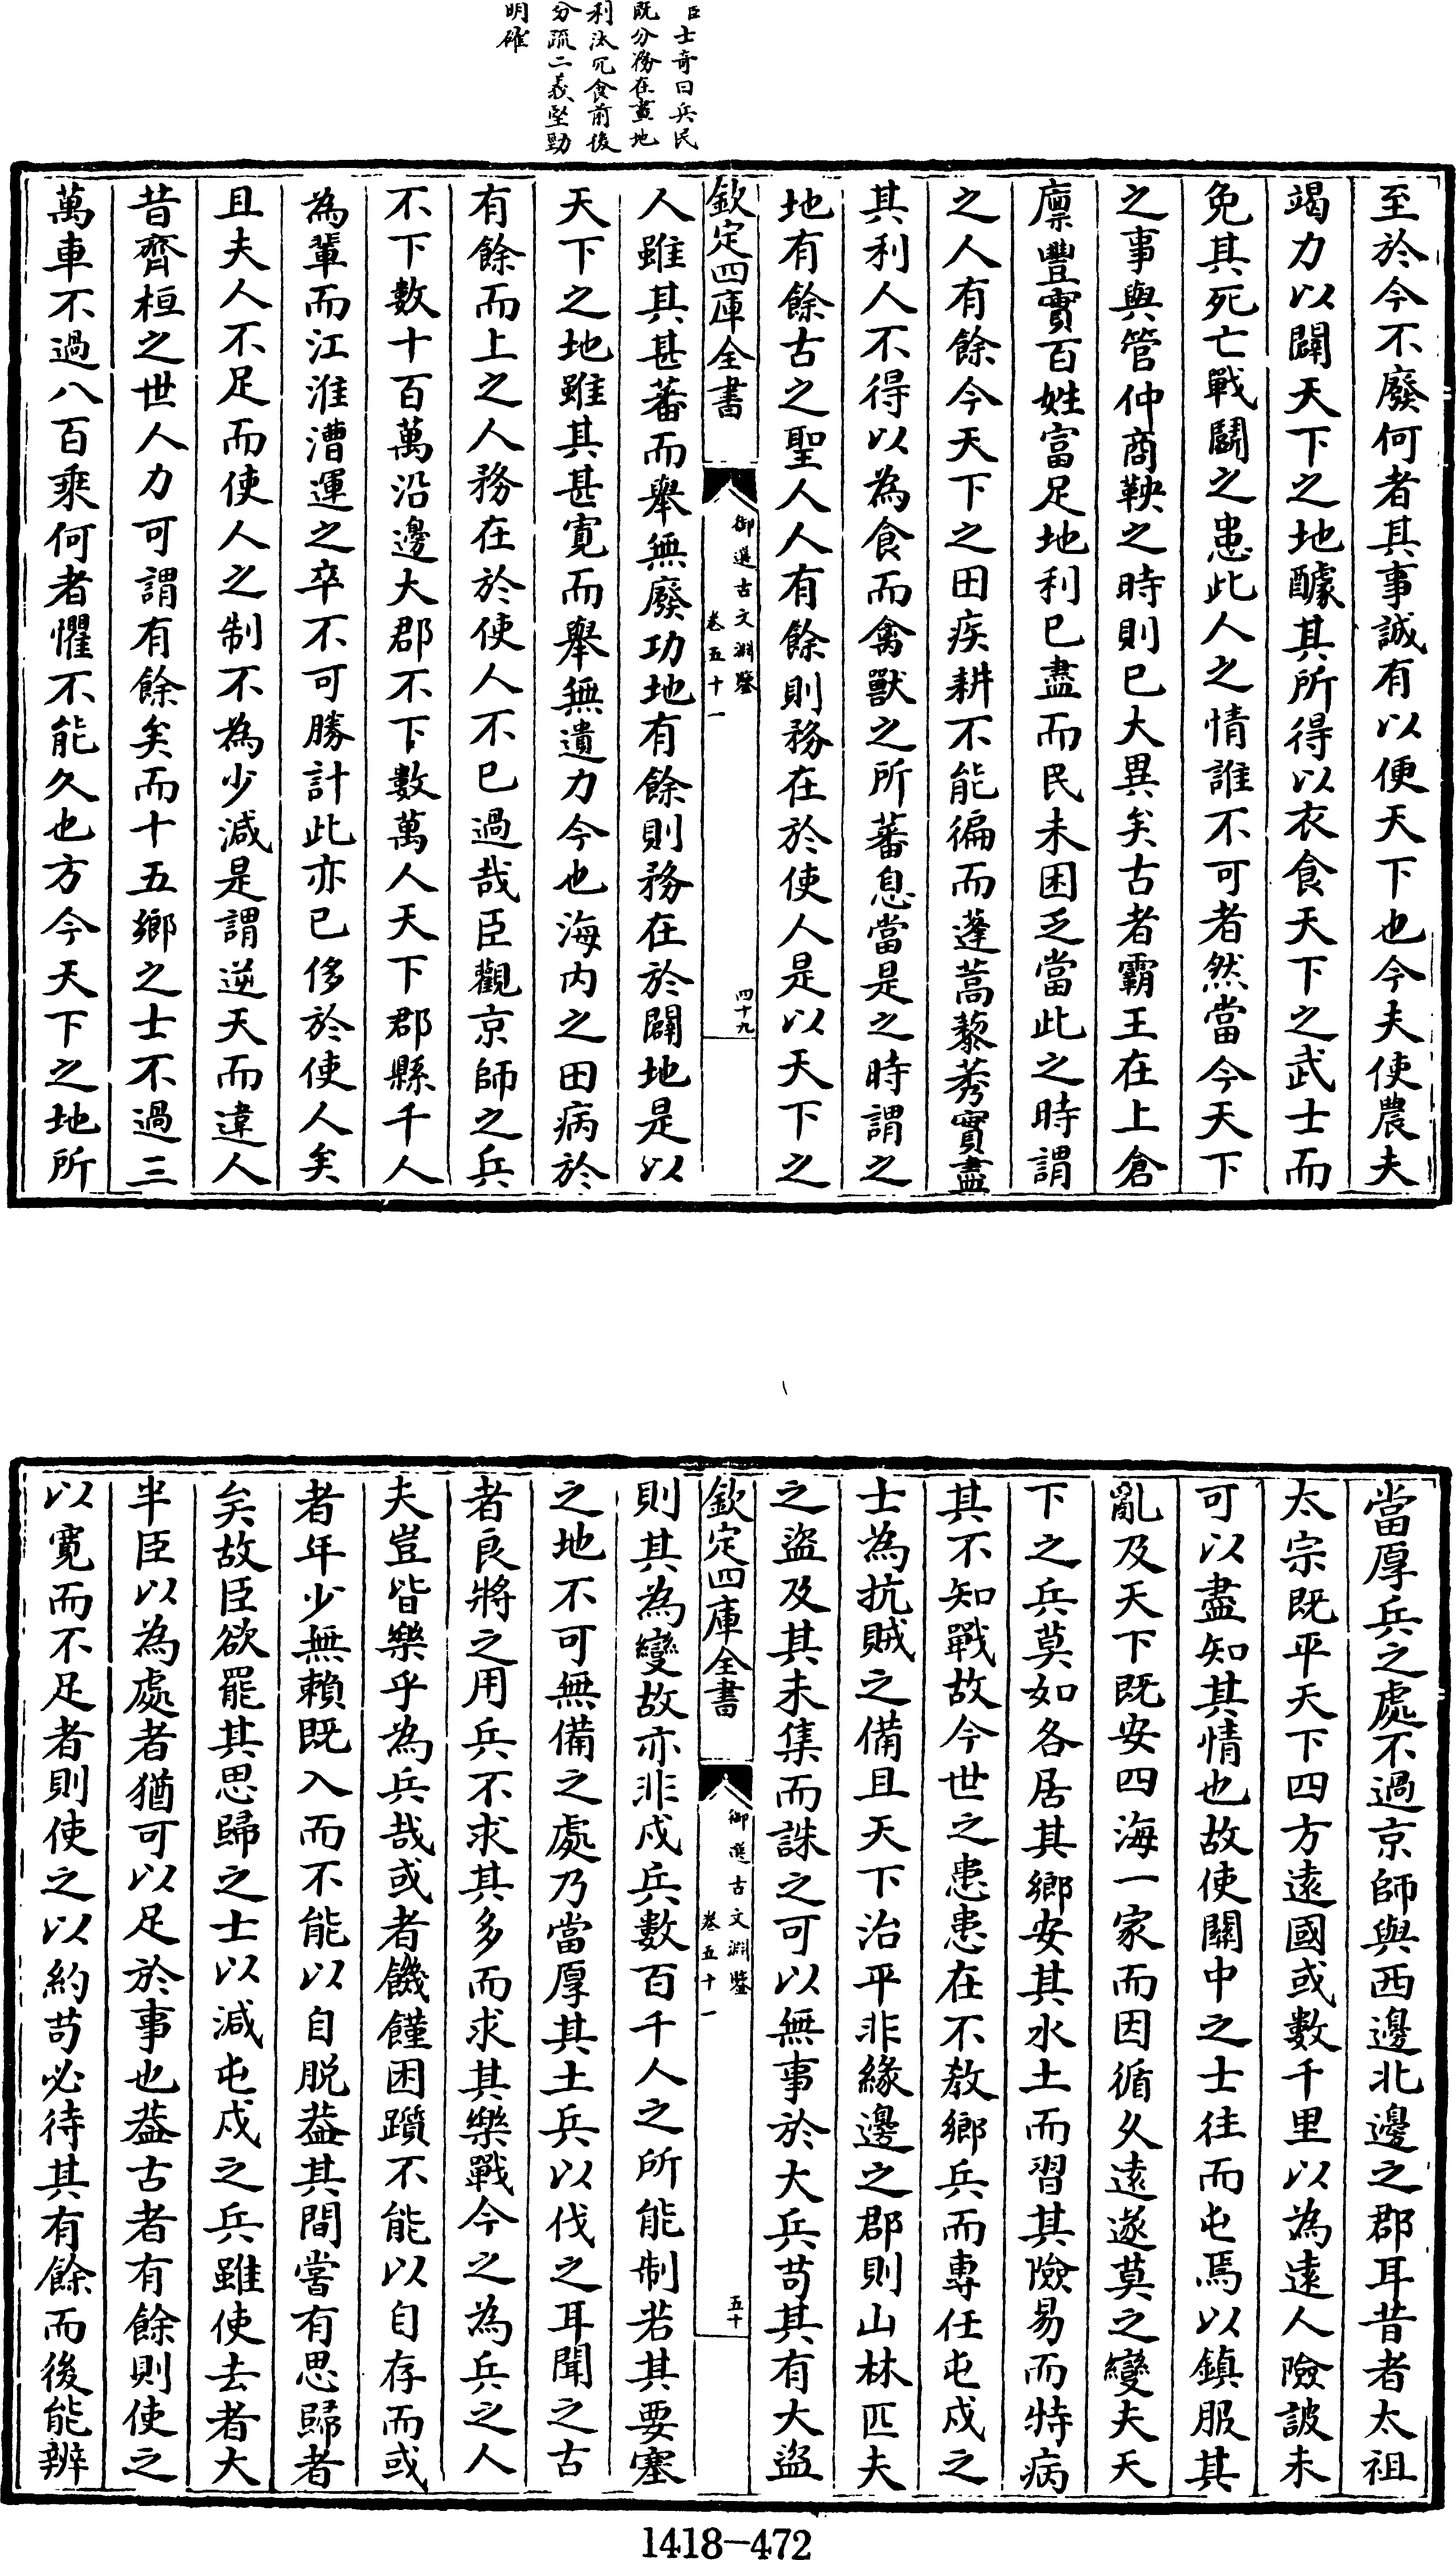 臣士奇曰兵民
既分務在盡地
利汰冗食前後
分疏二義堅勁
明確
至於今不廢何者其事誠有以便天下也今夫使農夫
竭力以闢天下之地醵其所得以衣食天下之武士而
免其死亡戰鬭之患此人之情誰不可者然當今天下
之事與管仲商鞅之時則已大異矣古者霸王在上倉
廪豐實百姓富足地利已盡而民未困乏當此之時謂
之人有餘今天下之田疾耕不能徧而蓬蒿藜莠實盡
其利人不得以為食而禽獸之所蕃息當是之時謂之
地有餘古之聖人人有餘則務在於使人是以天下之
欽定四庫全書
御選古文淵鑒
卷五十一
四十九
人雖其甚蕃而舉無廢功地有餘則務在於闢地是以
天下之地雖其甚寛而舉無遺力今也海内之田病於
有餘而上之人務在於使人不已過哉臣觀京師之兵
不下數十百萬沿邊大郡不下數萬人天下郡縣千人
為輩而江淮漕運之卒不可勝計此亦已侈於使人矣
且夫人不足而使人之制不為少減是謂逆天而違人
昔齊桓之世人力可謂有餘矣而十五鄉之士不過三
萬車不過八百乘何者懼不能久也方今天下之地所
當厚兵之處不過京師與西邊北邊之郡耳昔者太祖
太宗既平天下四方遠國或數千里以為遠人險詖未
可以盡知其情也故使關中之士往而屯焉以鎮服其
亂及天下既安四海一家而因循久遠遂莫之變夫天
下之兵莫如各居其鄉安其水土而習其險易而特病
其不知戰故今世之患患在不教鄉兵而專任屯戍之
士為抗賊之備且天下治平非緣邊之郡則山林匹夫
之盜及其未集而誅之可以無事於大兵苟其有大盜
欽定四庫全書
御選古文淵鑒
卷五十一
五十
則其為變故亦非戍兵數百千人之所能制若其要塞
之地不可無備之處乃當厚其土兵以伐之耳聞之古
者良將之用兵不求其多而求其樂戰今之為兵之人
夫豈皆樂乎為兵哉或者饑饉困躓不能以自存而或
者年少無賴既入而不能以自脱葢其間嘗有思歸者
矣故臣欲罷其思歸之士以減屯戍之兵雖使去者大
半臣以為處者猶可以足於事也葢古者有餘則使之
以寛而不足者則使之以約苟必待其有餘而後能辨
1418-472